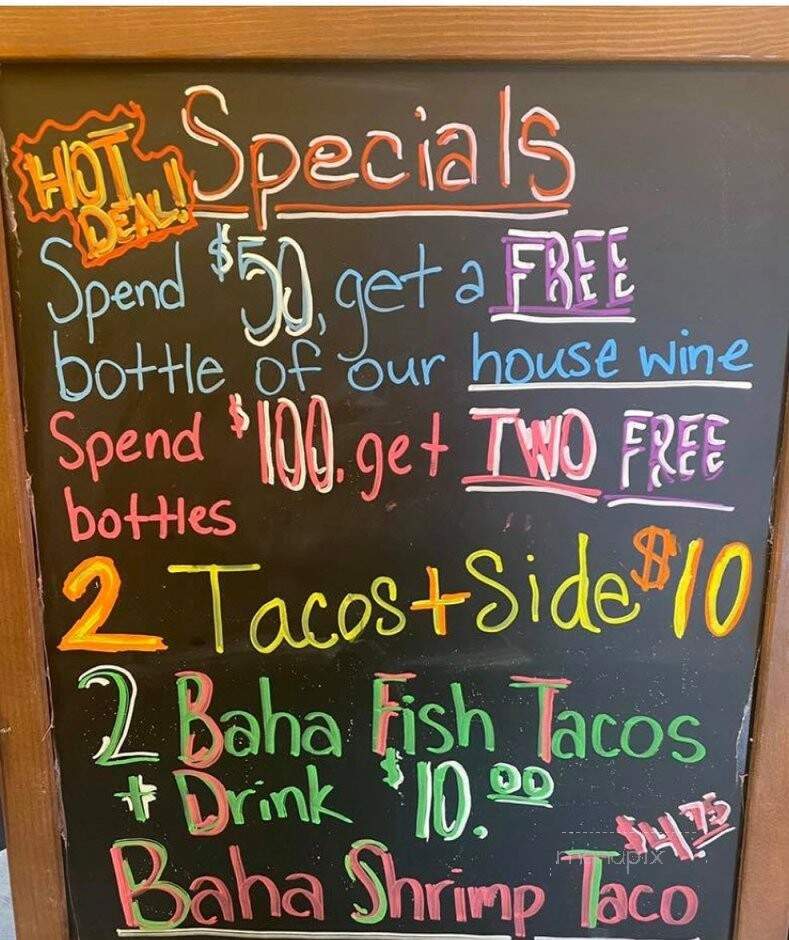 HOT DEAL!
Specials
Spend $50, get a FREE
bottle of our house wine
Spend $100. get TWO FREE
bottles
2 Tacos + Side $10
2 Baha Fish Tacos
+ Drink $10.00
$4.75
menupix
Baha Shrimp Taco